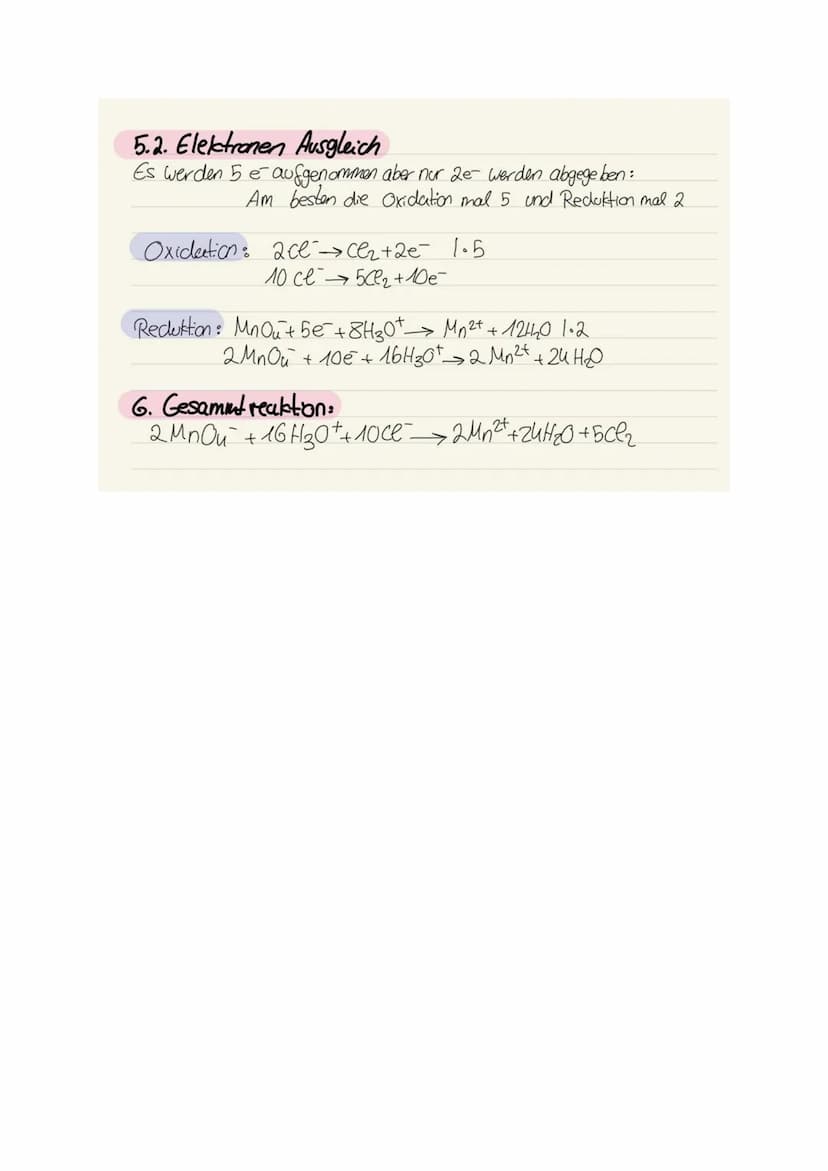 5.2. Elektronen Ausgleich
Es werden 5 e⁻ aufgenommen aber nur 2e⁻ werden abgegeben:
Am besten die Oxidation mal 5 und Reduktion mal 2
Oxidation: 2Cl⁻ → Cl₂ + 2e⁻ |·5
10 Cl⁻ → 5Cl₂ + 10e⁻
Reduktion: MnO₄⁻ + 5e⁻ + 8H₃O⁺ → Mn²⁺ + 12H₂O |·2
2MnO₄⁻ + 10e⁻ + 16H₃O⁺ → 2Mn²⁺ + 24H₂O
6. Gesammtreaktion:
2MnO₄⁻ + 16H₃O⁺ + 10Cl⁻ → 2Mn²⁺ + 24H₂O + 5Cl₂